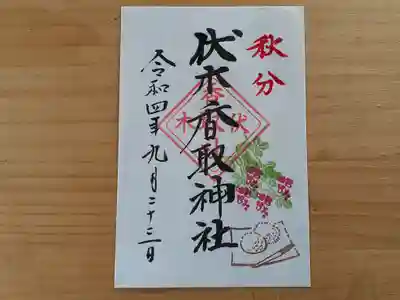 秋分
伏木香取神社
令和四年九月二十二日